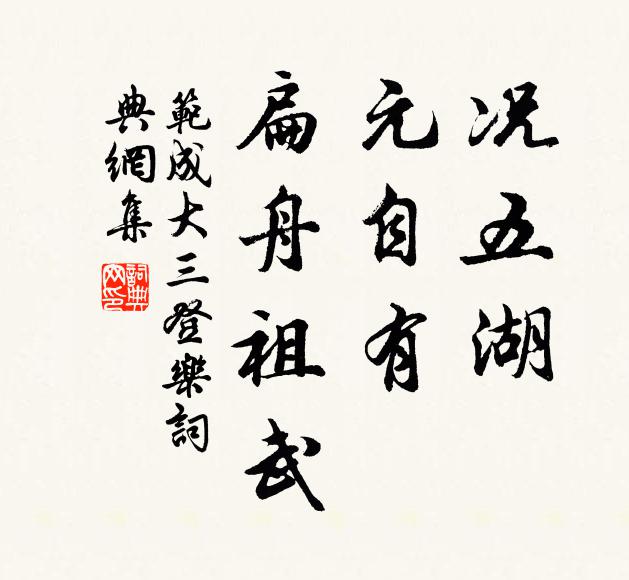 况五湖
元自有
扁舟祖武
範成大三登樂詞
典網集
詞典
网印